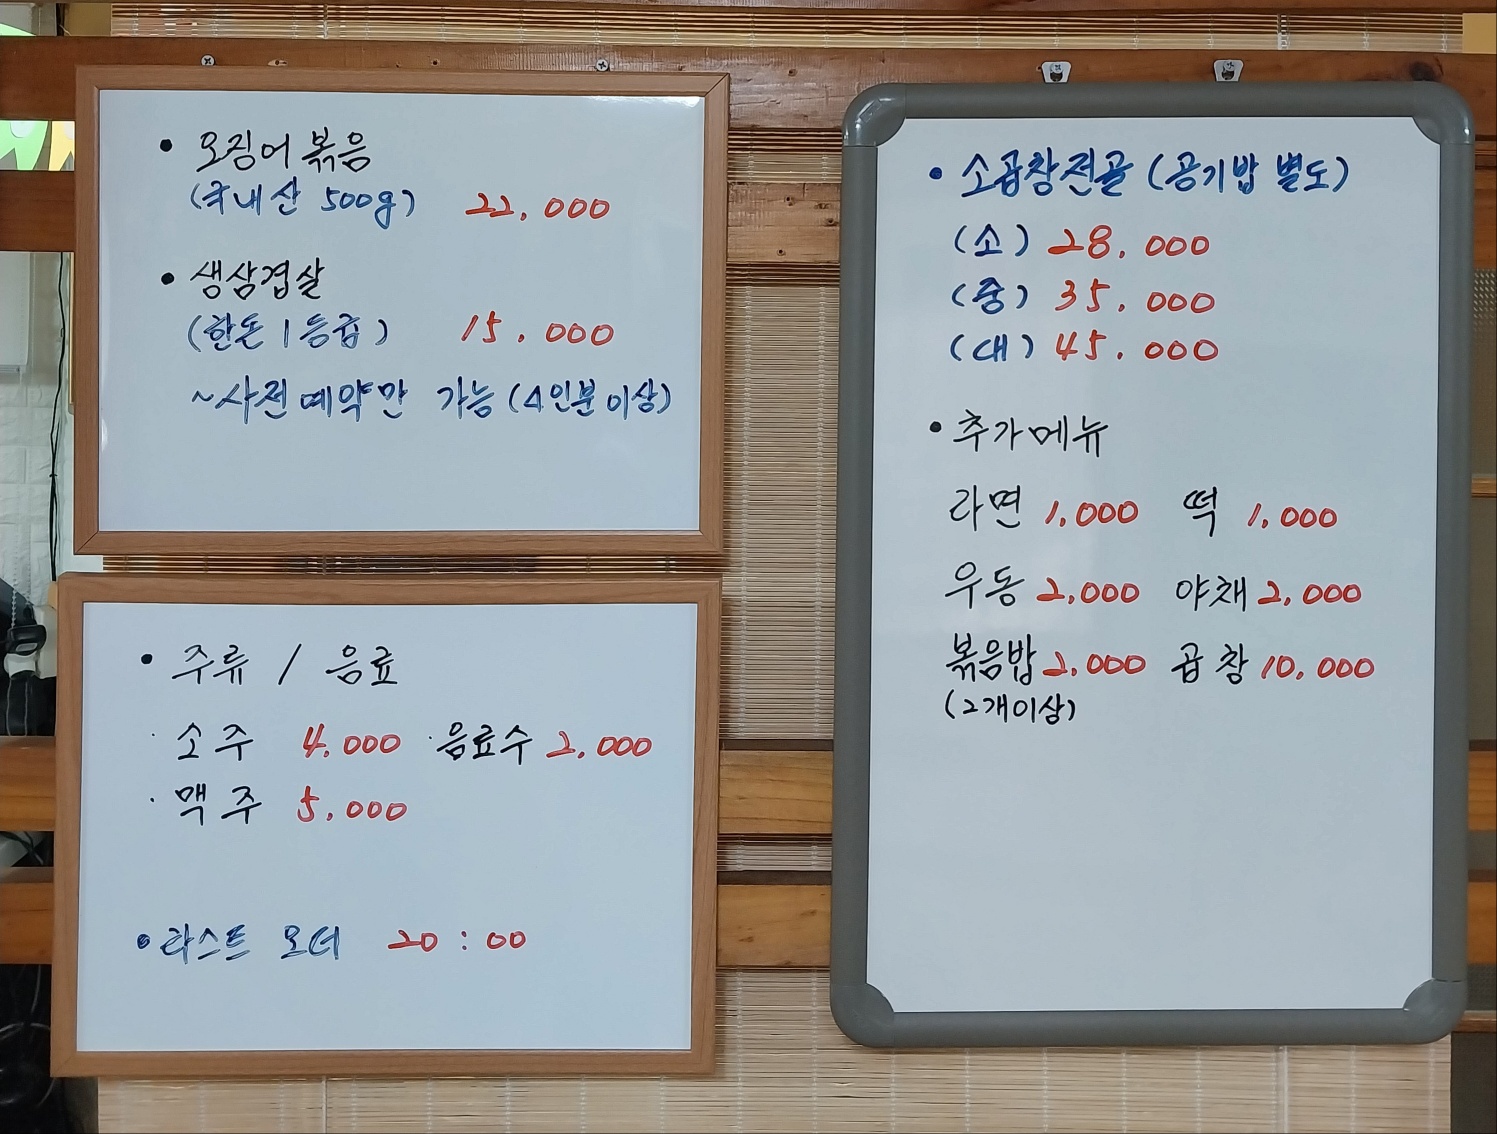 • 오징어볶음
(국내산 500g) 22,000
• 생삼겹살
(한돈 1등급) 15,000
~사전예약만 가능 (4인분이상)
• 주류 / 음료
· 소주 4,000 · 음료수 2,000
· 맥주 5,000
• 라스트 오더 20:00
• 소곱창전골 (공기밥 별도)
(소) 28,000
(중) 35,000
(대) 45,000
• 추가메뉴
라면 1,000 떡 1,000
우동 2,000 야채 2,000
볶음밥 2,000 곱창 10,000
(2개이상)